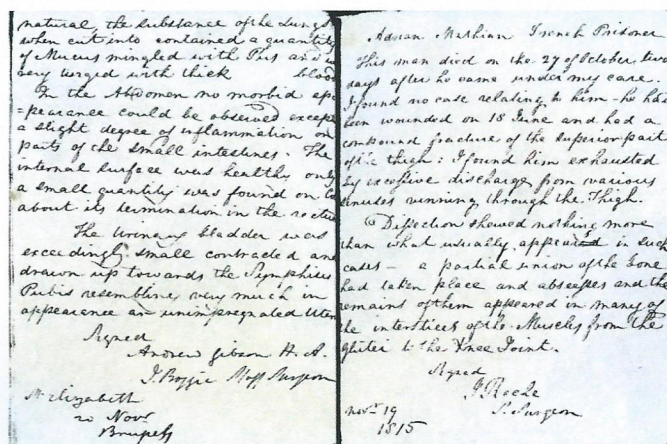 natural, the substance of the Lungs
when cut into contained a quantity
of Mucus mingled with Pus and is
very turged with thick blood
In the Abdomen no morbid ap=
=pearance could be observed except
a slight degree of inflammation on
parts of the small intestines The
internal surface was healthy only
a small quantity was found on
about its termination in the rectu
The Urinary bladder was
exceedingly small contracted and
drawn up towards the Symphisis
Pubis resembling very much in
appearance an unimpregnated Uteru
Signed
Andrew Gibson H. A.
J. Boggie Staff Surgeon
St. Elizabeth
20 Novr
Brussels
Adrian French Prisoner
This man died on the 27 of October, two
days after he came under my care.
I found no case relating to him – he had
been wounded on 18 June and had a
compound fracture of the superior part
of the thigh: I found him exhausted
by excessive discharge from various
sinuses running through the Thigh.
Dissection shewed nothing more
than what usually appeared in such
cases – a partial union of the bone
had taken place and abscesses and the
remains of them appeared in many of
the interstices of the Muscles from the
glutei to the Knee Joint.
Signed
J. Roche
S. Surgeon
Novr 19
1815